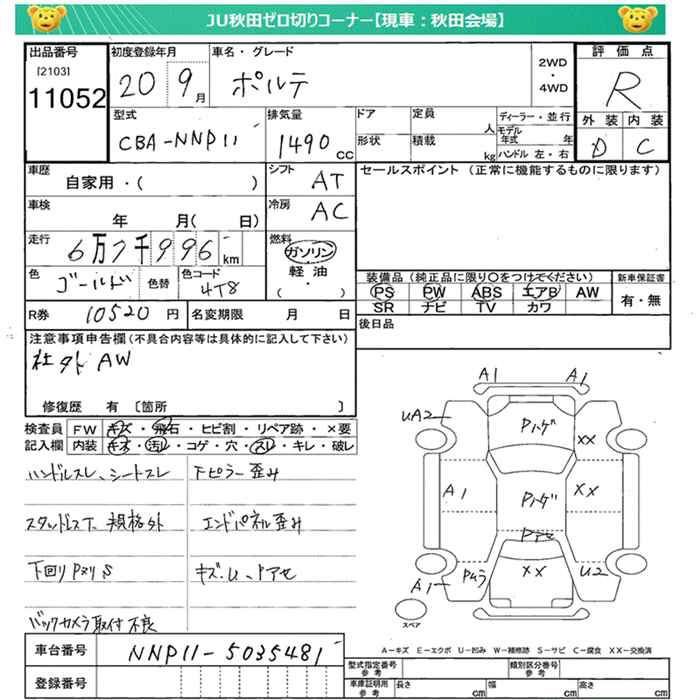 JU秋田ゼロ切りコーナー【現車：秋田会場】
出品番号 初度登録年月 車名・グレード 2WD・4WD 評価点
[2103]
11052 20 9月 ポルテ R
型式 排気量 ドア 定員 人 ディーラー・並行 外装 内装
CBA-NNP11 1490cc 形状 積載 kg モデル年式 年 D C
ハンドル 左・右
車歴 シフト セールスポイント（正常に機能するものに限ります）
自家用・（ ） AT
車検 冷房
年 月（ 日） AC
走行 燃料
6万7千996km ガソリン
軽油
・（ ）
色 色替 色コード
ゴールド 4T8
装備品（純正品に限り○をつけてください） 新車保証書
PS PW ABS エアB AW 有・無
SR ナビ TV カワ
R券 10520円 名変期限 月 日 後日品
注意事項申告欄（不具合内容等は具体的に記入して下さい）
社外AW
修復歴 有〔箇所 〕
検査員 FW キズ・飛石・ヒビ割・リペア跡・×要
記入欄 内装 キズ・汚れ・コゲ・穴・スレ・キレ・破レ
ハンドルスレ、シートスレ 下ピラー歪み
スタッドレス下 規格外 エンドパネル歪み
下回りPヌリS キズ・U・Pアセ
バックカメラ取付不良
A1 A1
UA2 Pハゲ XX
A1 Pハゲ XX
Pアセ
A1 Pムラ XX U2
スペア
A－キズ E－エクボ U－凹み W－補修跡 S－サビ C－腐食 XX－交換済
車台番号 NNP11-5035481
登録番号
型式指定番号 参考 類別区分番号 参考
車庫証明用 参考 長さ cm 幅 cm 高さ cm